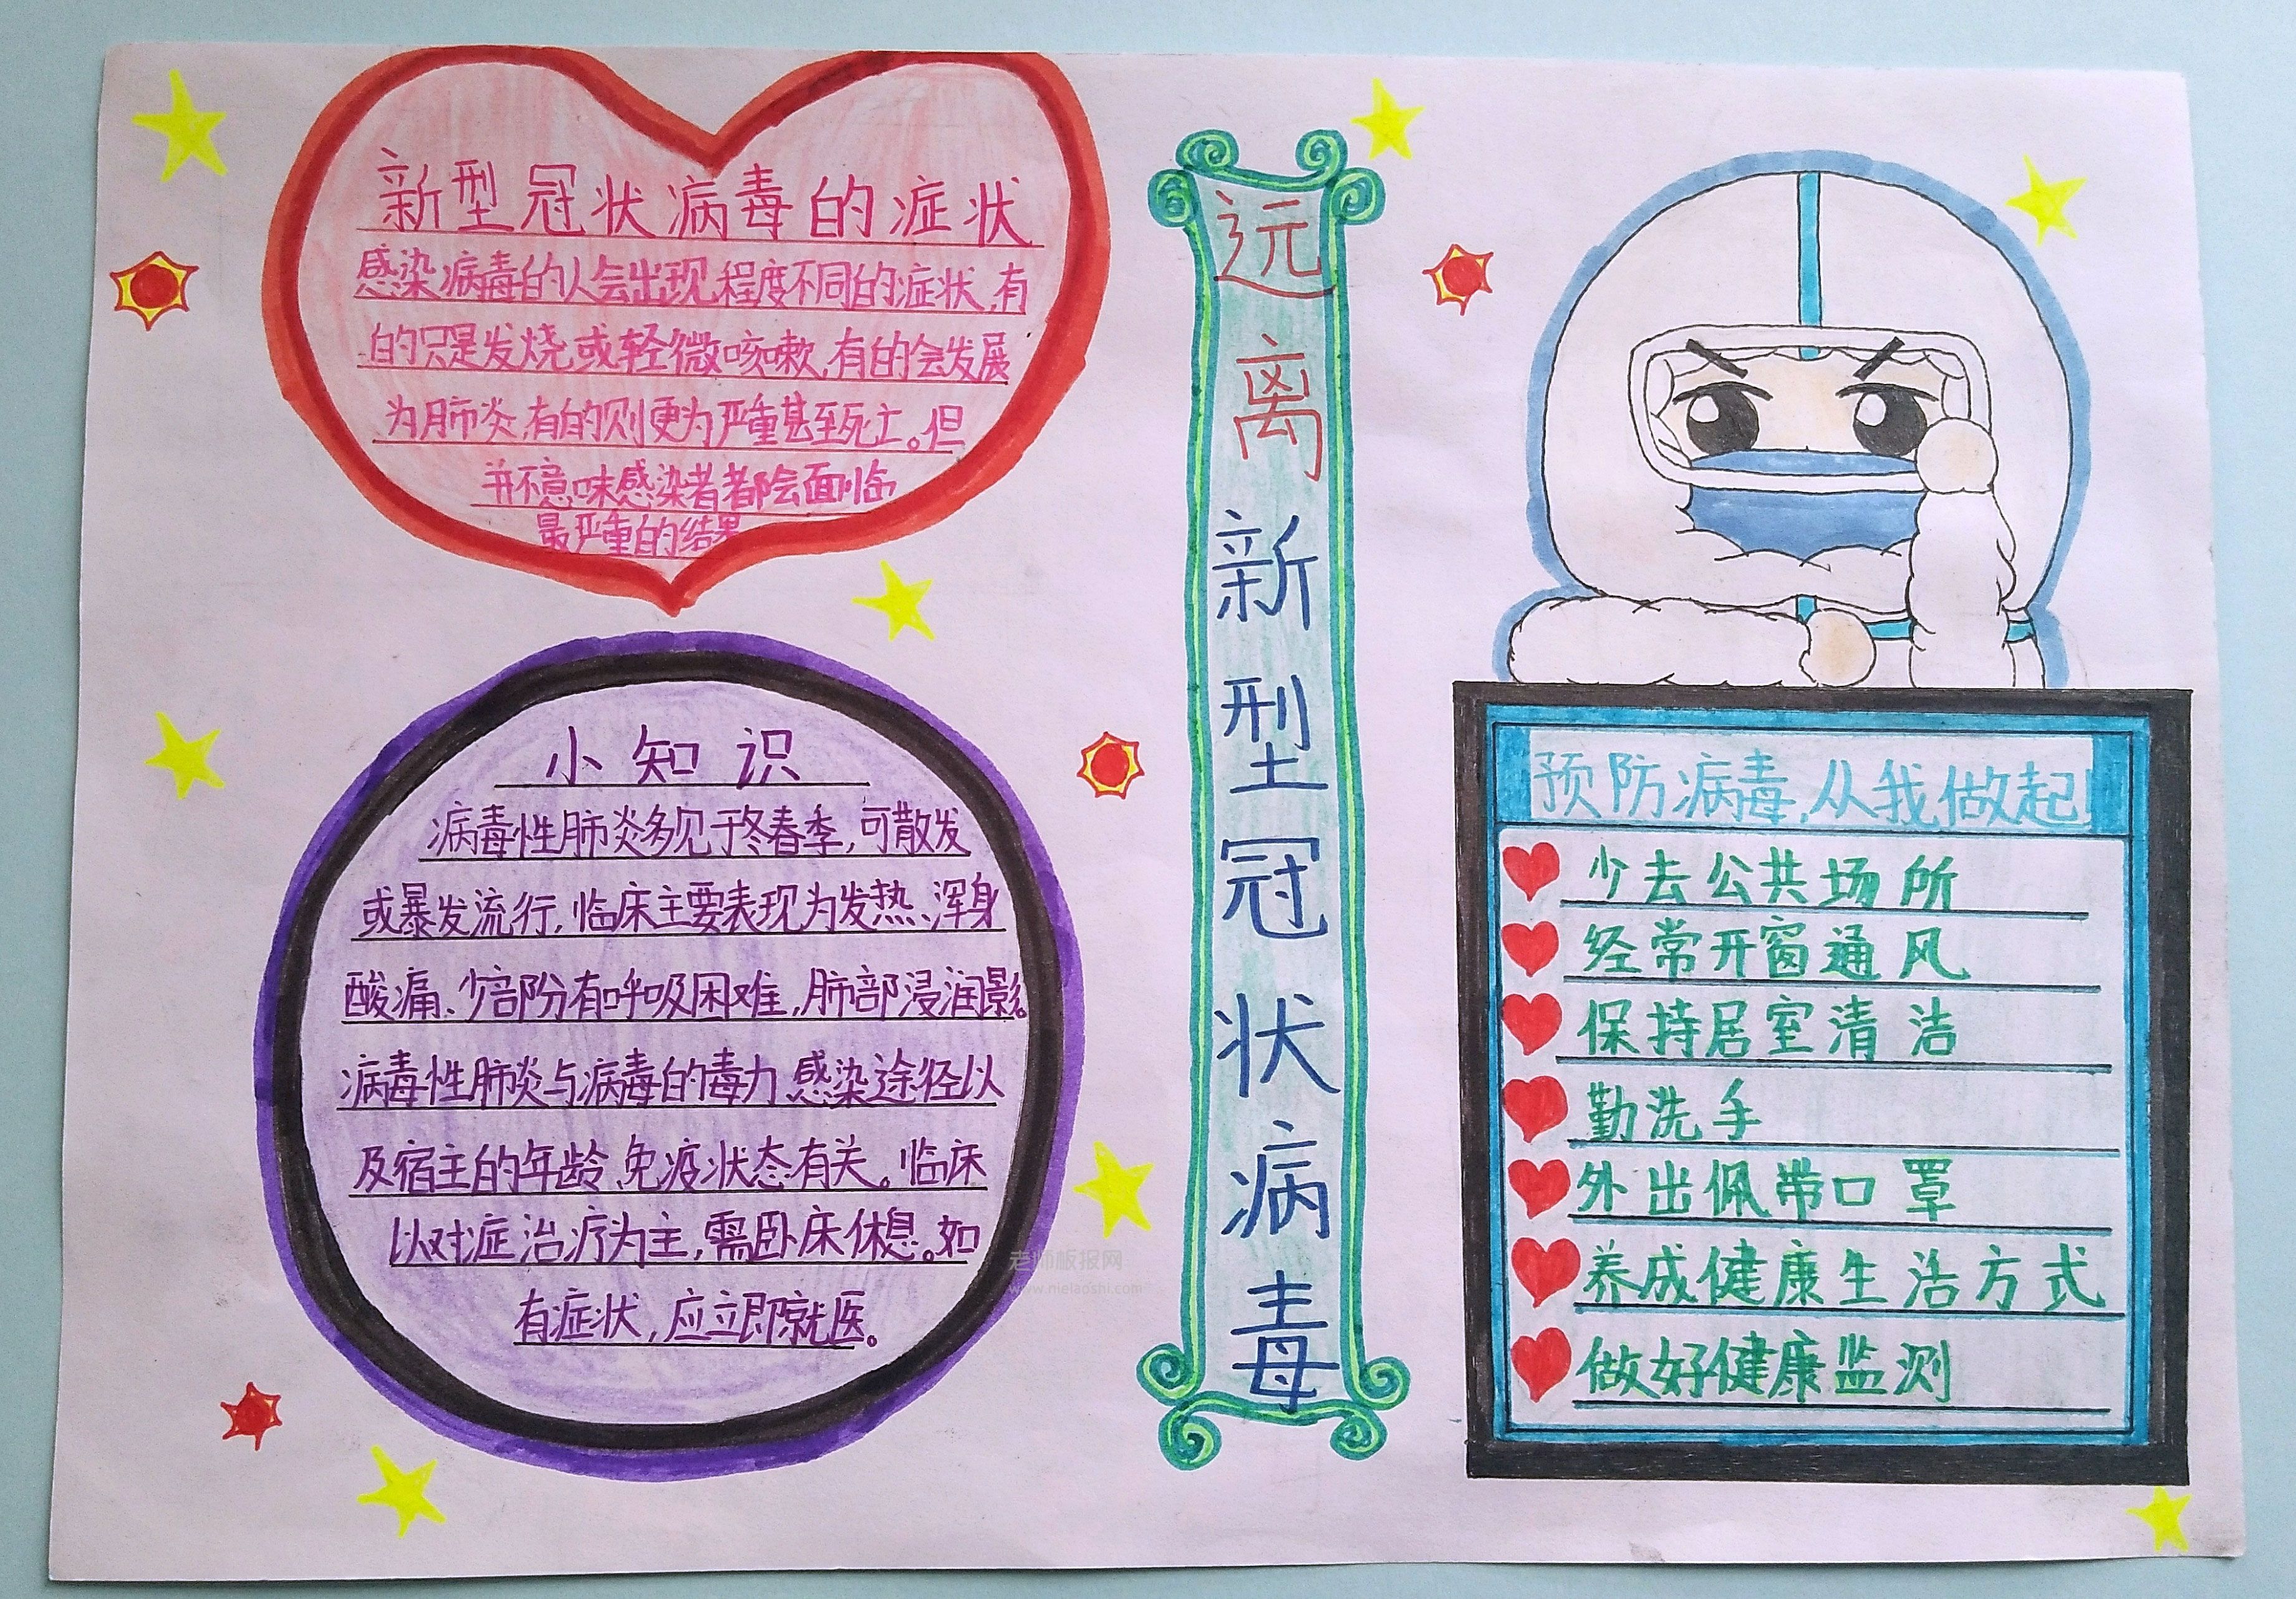 新型冠状病毒的症状
感染病毒的人会出现程度不同的症状,有
的只是发烧或轻微咳嗽,有的会发展
为肺炎,有的则更为严重甚至死亡。但
并不意味感染者都会面临
最严重的结果
小知识
病毒性肺炎多见于冬春季,可散发
或暴发流行,临床主要表现为发热、浑身
酸痛、少部份有呼吸困难,肺部浸润影。
病毒性肺炎与病毒的毒力、感染途径以
及宿主的年龄、免疫状态有关。临床
以对症治疗为主,需卧床休息。如
有症状,应立即就医。
远离新型冠状病毒
预防病毒,从我做起!
少去公共场所
经常开窗通风
保持居室清洁
勤洗手
外出佩带口罩
养成健康生活方式
做好健康监测
老师板报网